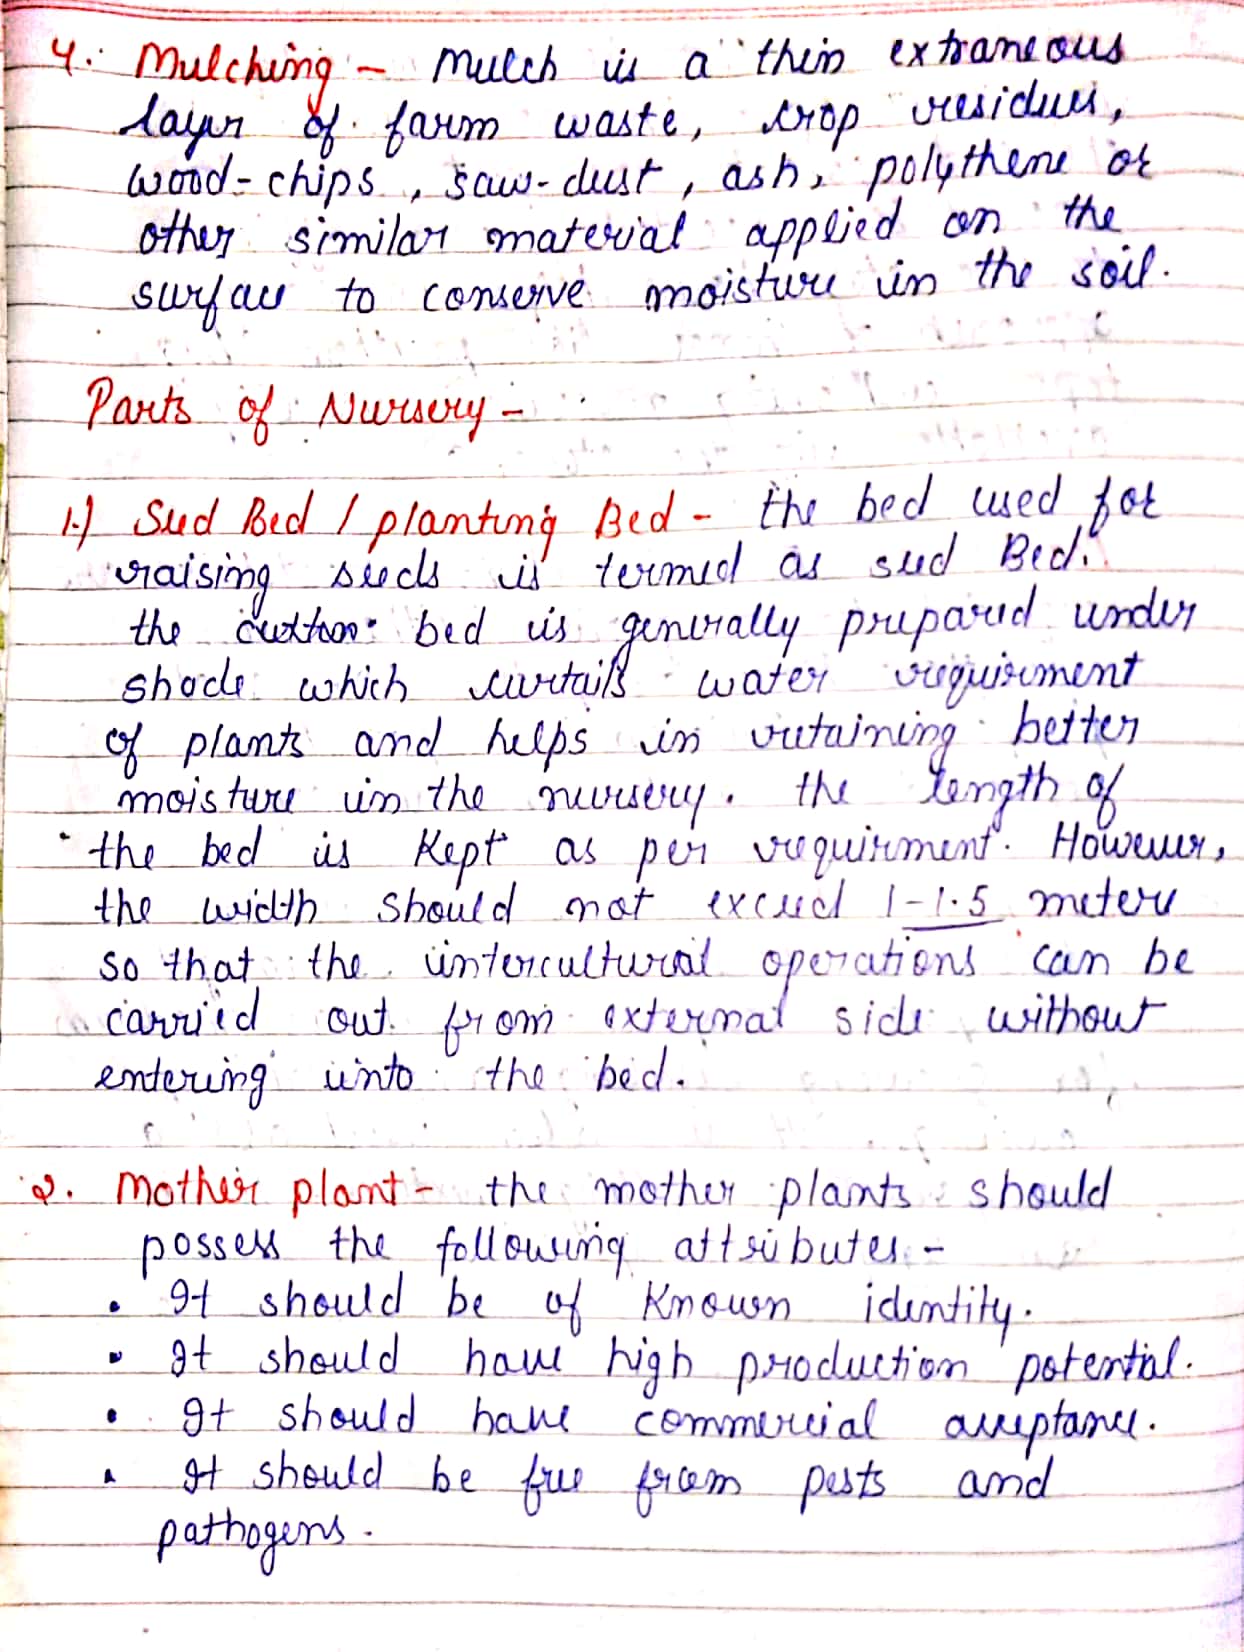 4. Mulching - Mulch is a thin extraneous
layer of farm waste, crop residues,
wood-chips, saw-dust, ash, polythene or
other similar material applied on the
surface to conserve moisture in the soil.
Parts of Nursery -
1.) Seed Bed / planting Bed - the bed used for
raising seeds is termed as seed Bed.
the bed is generally prepared under
shade which curtails water requirment
of plants and helps in retaining better
moisture in the nursery. the length of
the bed is Kept as per requirment. However,
the width should not exceed 1-1.5 meters
so that the intercultural operations can be
carried out from external side without
entering into the bed.
2. Mother plant - the mother plants should
possess the following attributes -
• It should be of Known identity.
• It should have high production potential.
• It should have commercial acceptance.
• It should be free from pests and
pathogens.